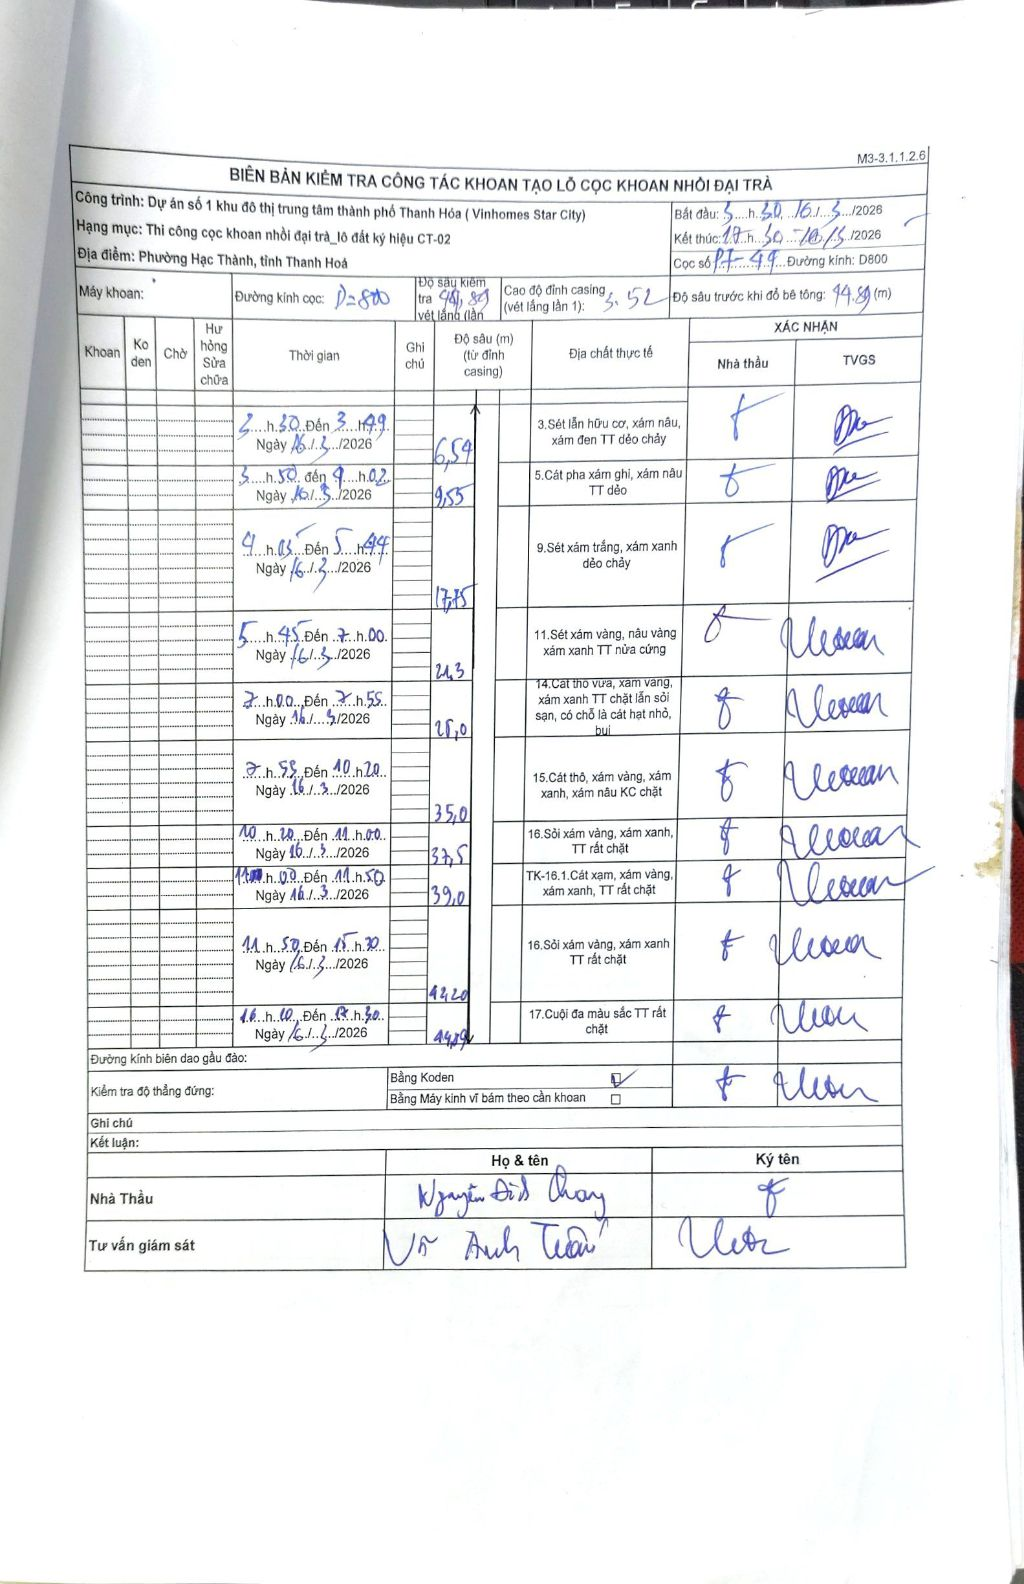 M3-3.1.1.2.6
BIÊN BẢN KIỂM TRA CÔNG TÁC KHOAN TẠO LỖ CỌC KHOAN NHỒI ĐẠI TRÀ
Công trình: Dự án số 1 khu đô thị trung tâm thành phố Thanh Hóa ( Vinhomes Star City)
Hạng mục: Thi công cọc khoan nhồi đại trà_lô đất ký hiệu CT-02
Địa điểm: Phường Hạc Thành, tỉnh Thanh Hoá
Bắt đầu: 3....h.30, 16./...3.../2026
Kết thúc: 17.h..30 ...16/3.../2026
Cọc số P1-49...Đường kính: D800
Máy khoan:
Đường kính cọc: D=800
Độ sâu kiểm tra 44,89 vét lắng (lần
Cao độ đỉnh casing (vét lắng lần 1): 3.52
Độ sâu trước khi đổ bê tông: 44.89 (m)
Khoan
Ko đen
Chờ
Hư hỏng Sửa chữa
Thời gian
Ghi chú
Độ sâu (m) (từ đỉnh casing)
Địa chất thực tế
XÁC NHẬN
Nhà thầu
TVGS
3....h.30..Đến 3....h.49
Ngày 16./.3.../2026
6,54
3.Sét lẫn hữu cơ, xám nâu, xám đen TT dẻo chảy
3....h.50. đến 4....h.02.
Ngày 16./..3.../2026
9,55
5.Cát pha xám ghi, xám nâu TT dẻo
4....h.05...Đến 5...h.44
Ngày 16./.3..../2026
17,75
9.Sét xám trắng, xám xanh dẻo chảy
5....h.45.Đến .7..h.00.
Ngày 16./..3./2026
21,3
11.Sét xám vàng, nâu vàng xám xanh TT nửa cứng
7...h.00..Đến .7..h.55.
Ngày .16./....3/2026
25,0
14.Cát thô vừa, xám vàng, xám xanh TT chặt lẫn sỏi sạn, có chỗ là cát hạt nhỏ, bụi
7...h.55.Đến 10.h20.
Ngày 16./..3../2026
35,0
15.Cát thô, xám vàng, xám xanh, xám nâu KC chặt
10..h.20..Đến 11.h.00.
Ngày 16./...3../2026
37,5
16.Sỏi xám vàng, xám xanh, TT rất chặt
11 h.00 Đến .11.h.50
Ngày 16./...3../2026
39,0
TK-16.1.Cát xạm, xám vàng, xám xanh, TT rất chặt
11..h..50.Đến 15.h.30
Ngày 16./.3.../2026
16.Sỏi xám vàng, xám xanh TT rất chặt
16..h.10..Đến .17.h.30.
Ngày 16./..3../2026
44,89
17.Cuội đa màu sắc TT rất chặt
Đường kính biên dao gầu đào:
Kiểm tra độ thẳng đứng:
Bằng Koden ☑
Bằng Máy kinh vĩ bám theo cần khoan ☐
Ghi chú
Kết luận:
Họ & tên
Ký tên
Nhà Thầu
Nguyễn
Tư vấn giám sát
Anh Tuấn